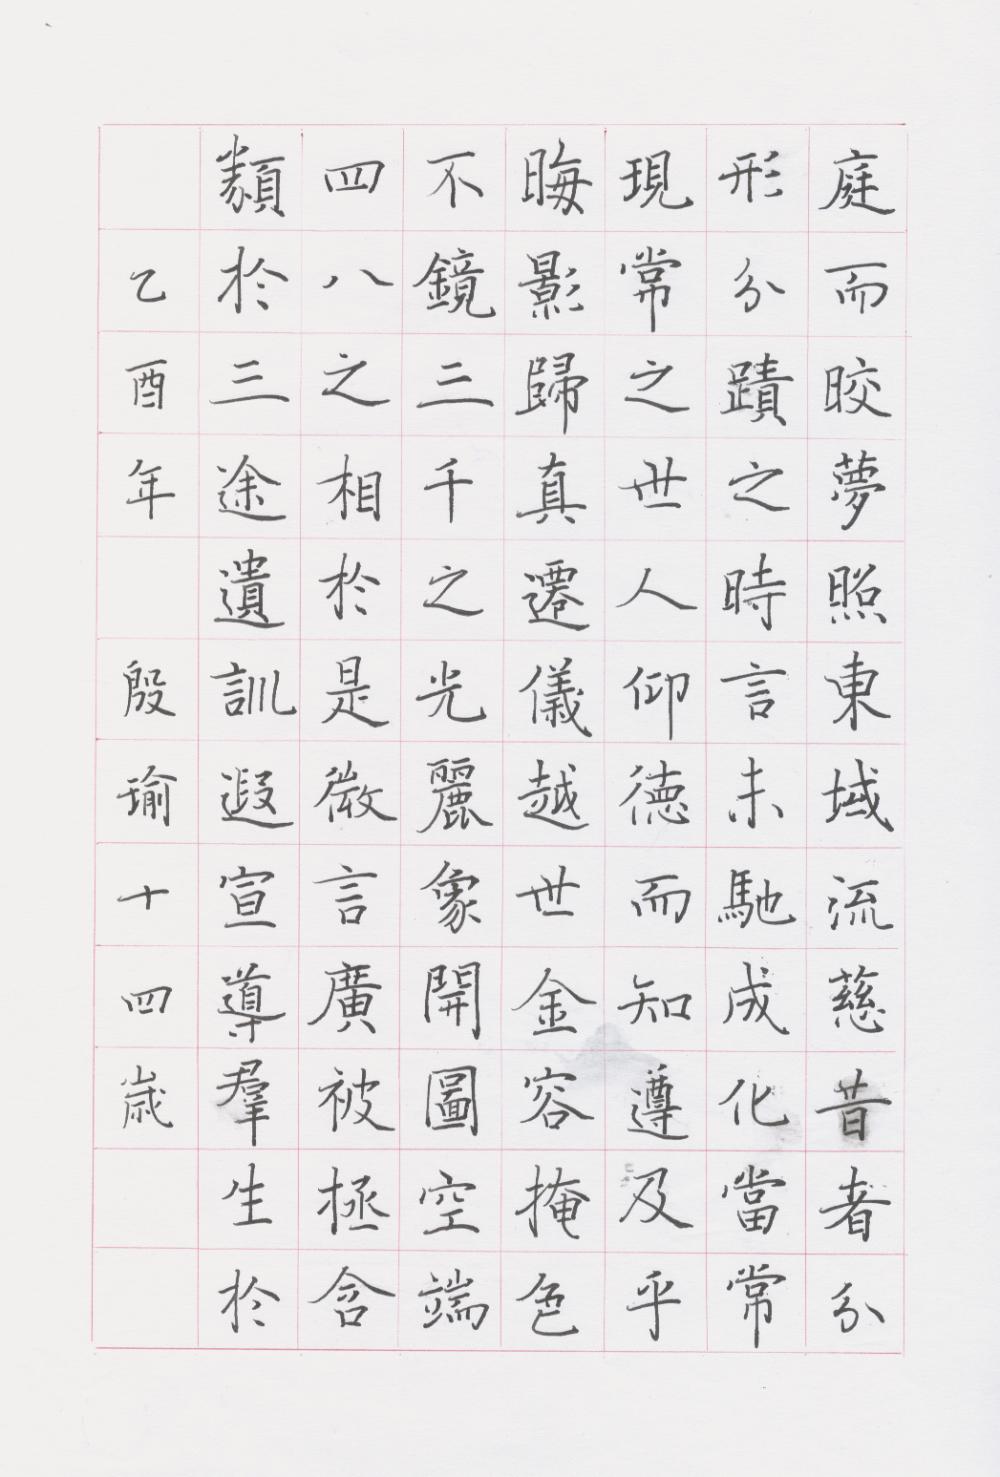 庭而晈夢照東域流慈昔者分
形分蹟之時言未馳成化當常
現常之世人仰徳而知遵及乎
晦影歸真遷儀越世金容掩色
不鏡三千之光麗象開圖空端
四八之相於是微言廣被拯含
類於三途遺訓遐宣導羣生於
乙酉年 殷瑜十四歲